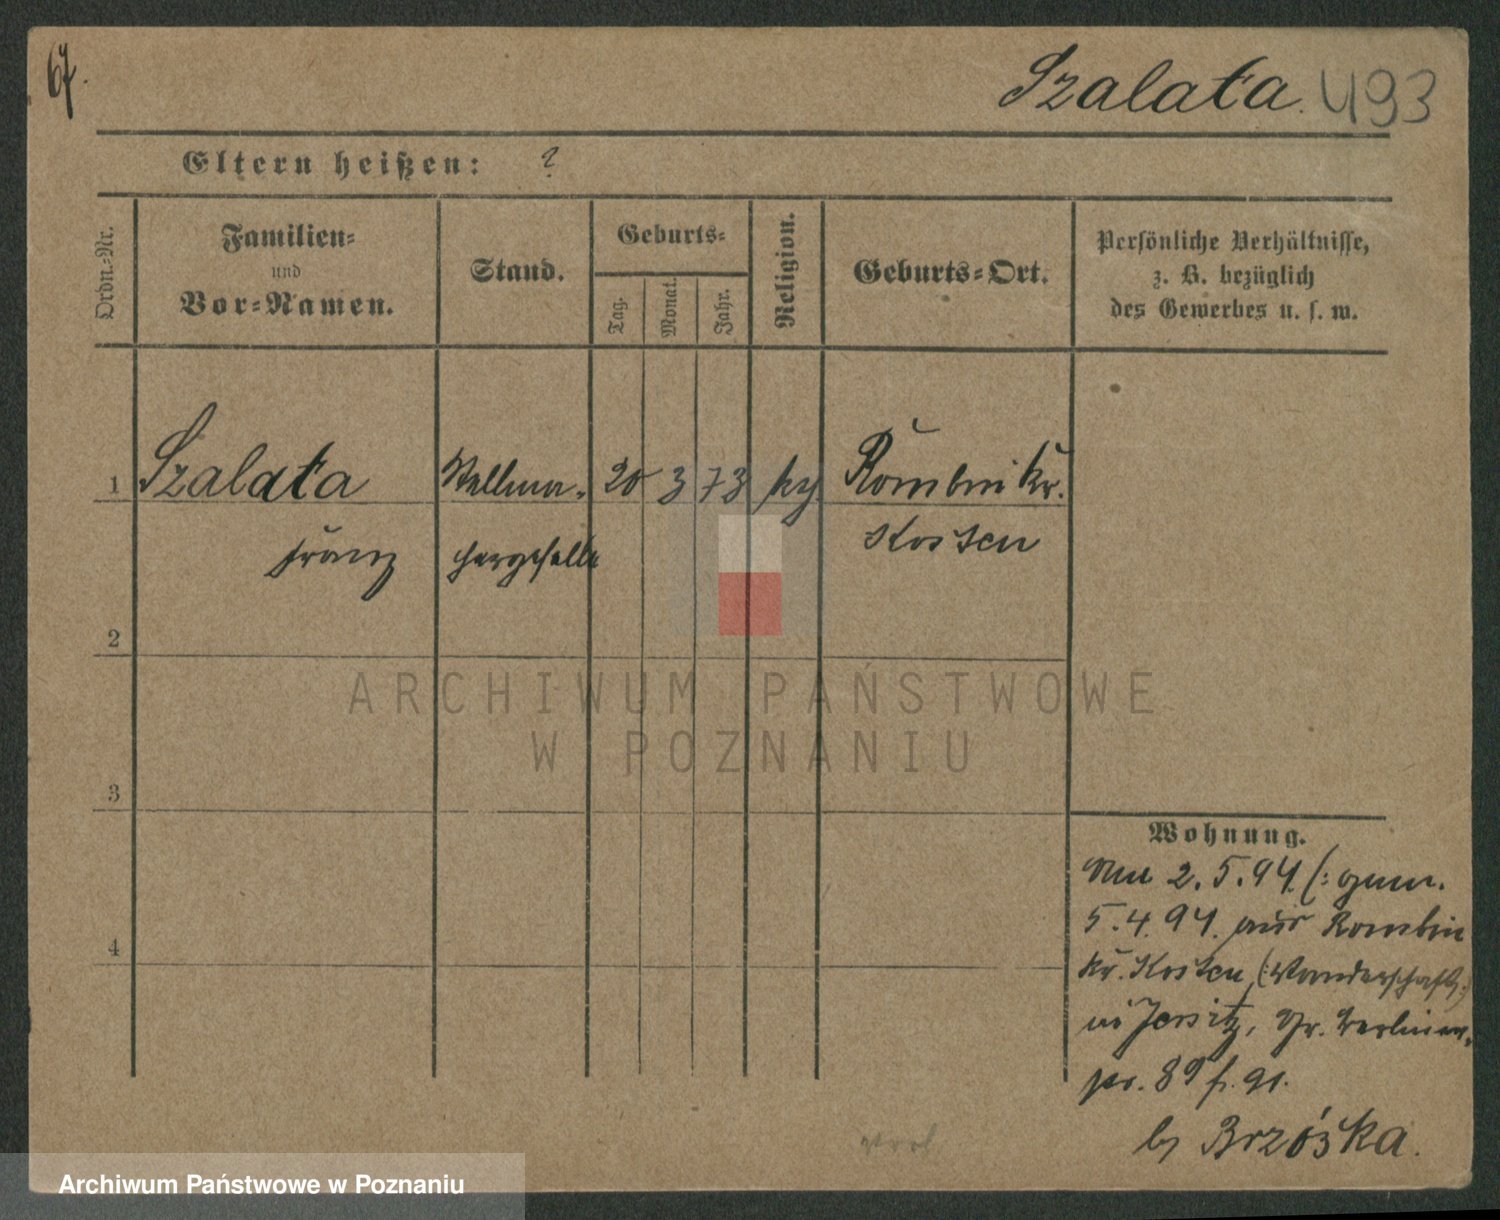 67.
Szalata. 493
Eltern heißen: ?
Ordn.-Nr.
Familien-
und
Vor-Namen.
Stand.
Geburts-
Tag.
Monat.
Jahr.
Religion.
Geburts-Ort.
Persönliche Verhältnisse,
z. B. bezüglich
des Gewerbes u. s. w.
1 Szalata Stellma- 20 3 73 Rombin Kr.
Franz chergeselle Kosten
2
3
4
Wohnung.
2.5.94 (: gem.
5.4.94. aus Rombin
Kr. Kosten (: Wanderschaft :)
in Jersitz, Gr. Berliner-
89
b/ Brzóska.
ARCHIWUM PAŃSTWOWE
W POZNANIU
Archiwum Państwowe w Poznaniu